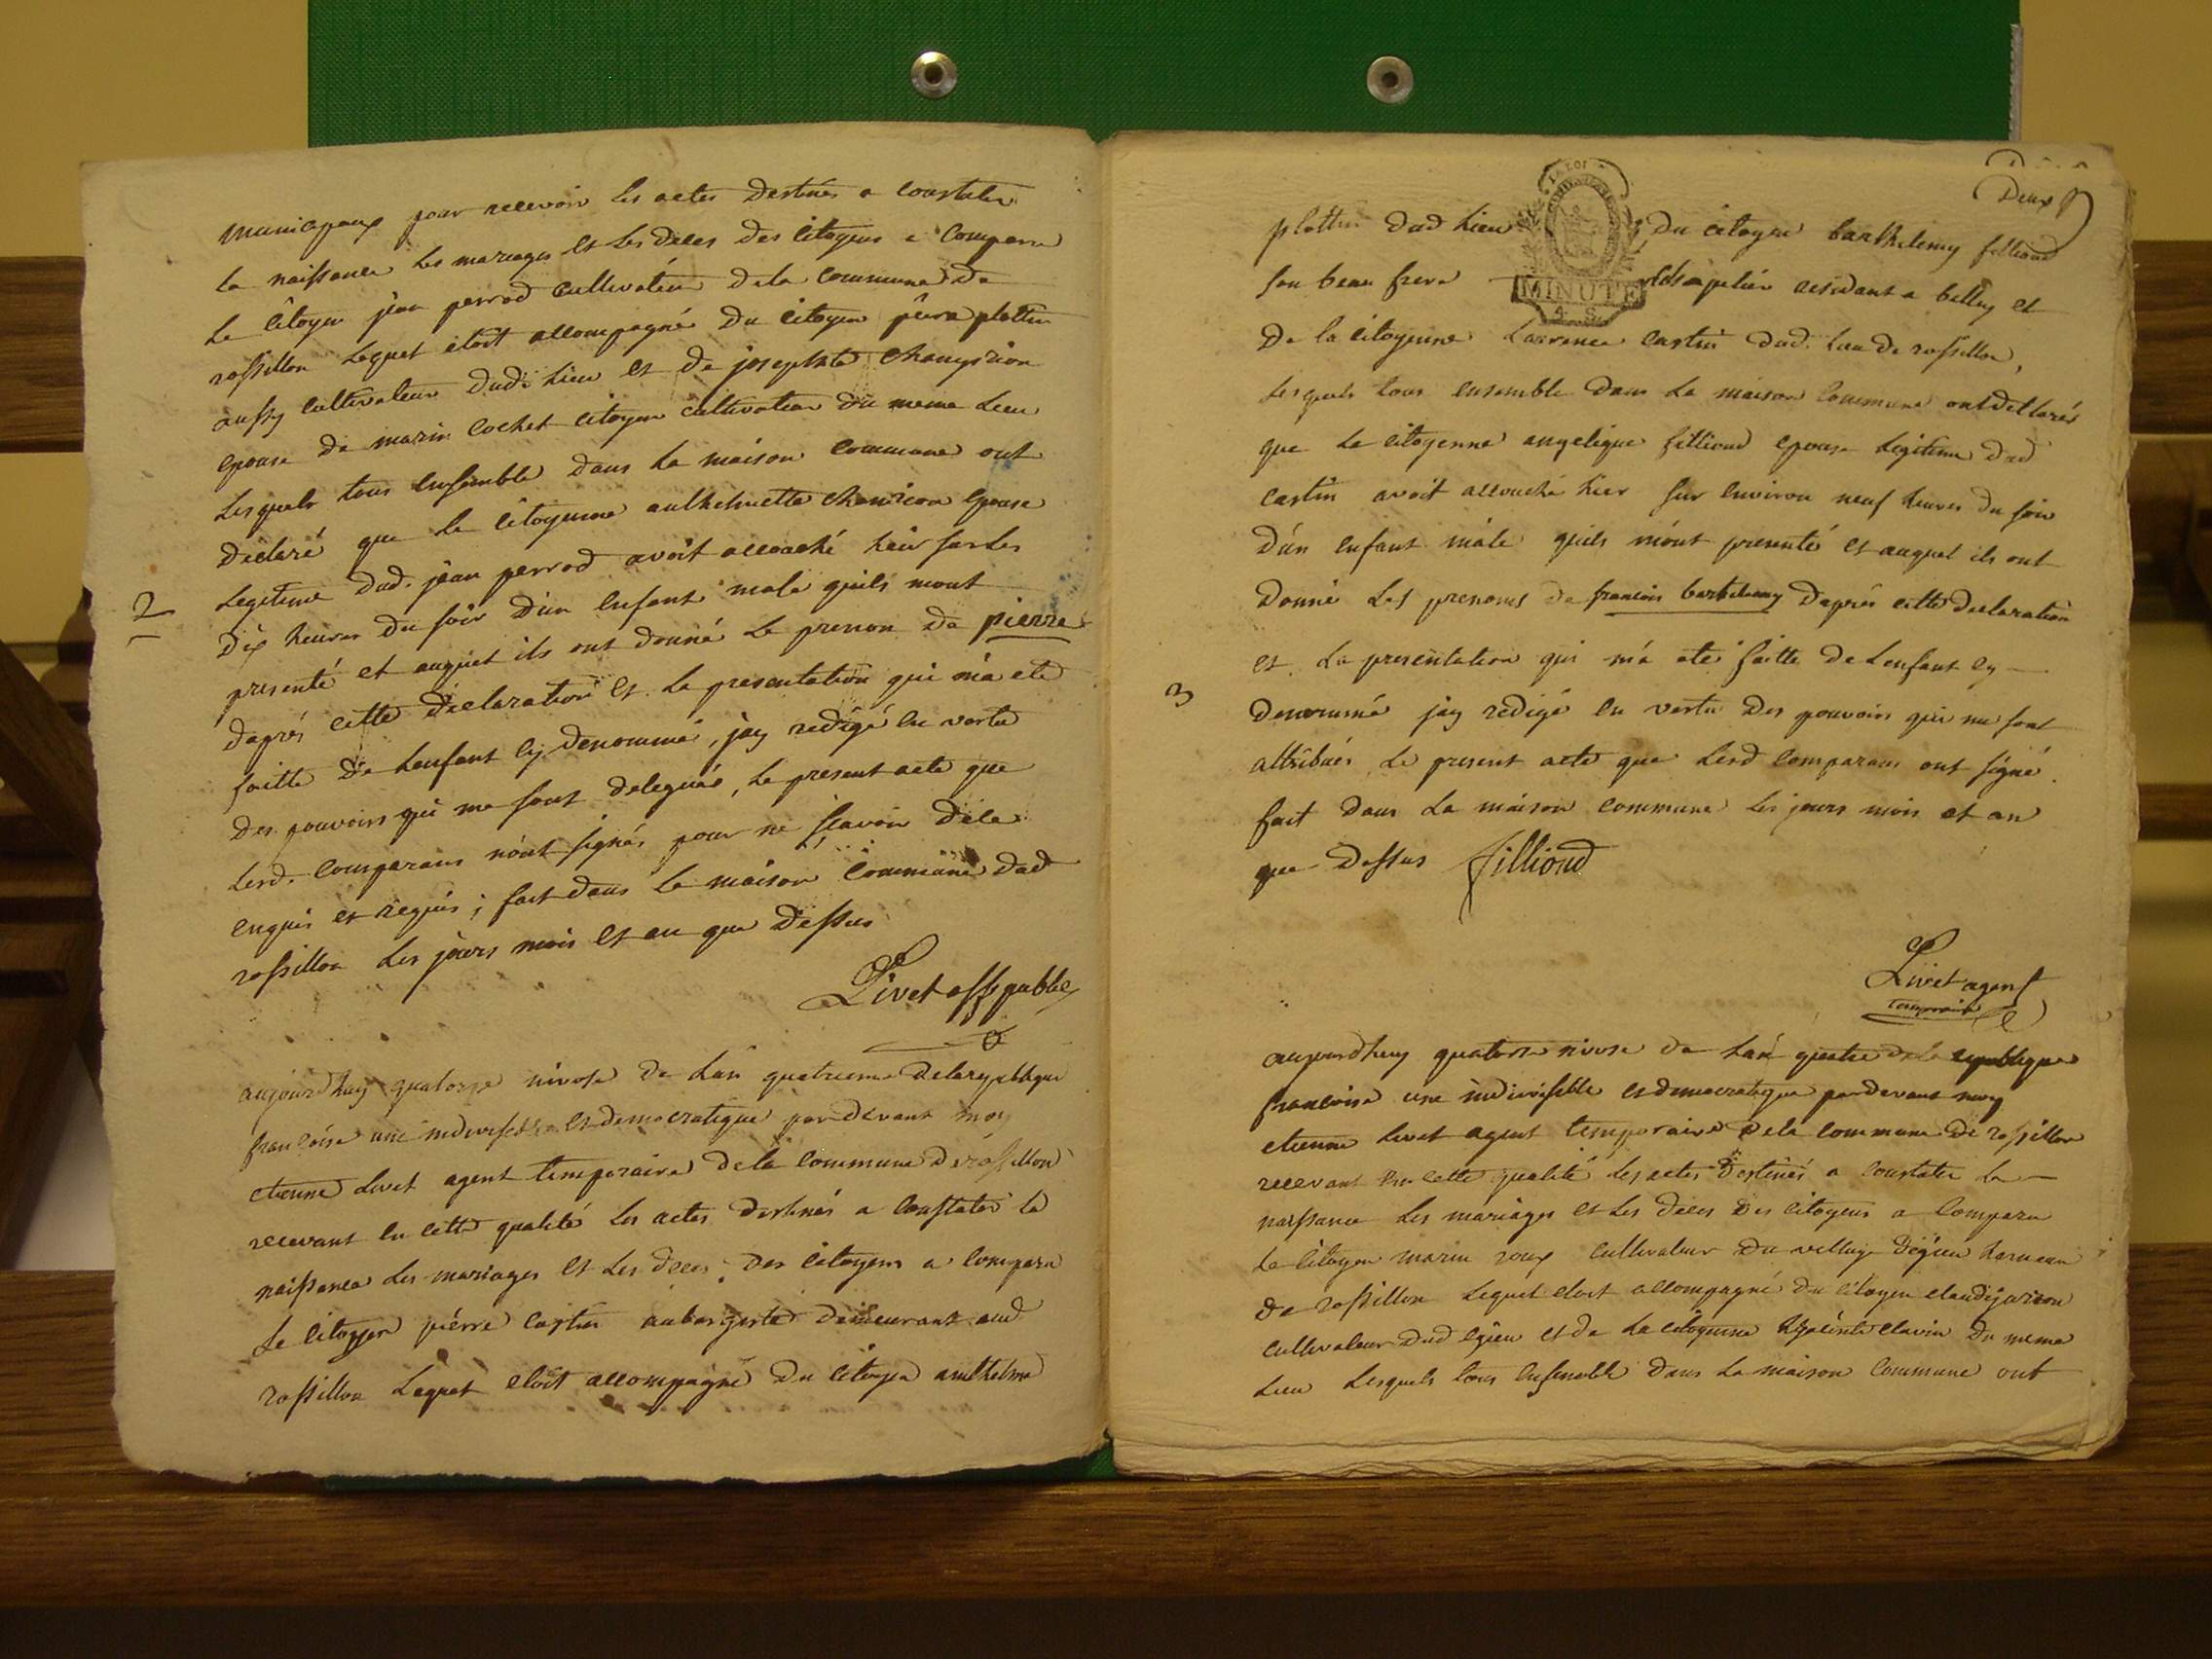 municipaux pour recevoir les actes destinés a constater
la naissance les mariages et les deces des citoyens a comparu
le citoyen jean perrod cultivateur de la commune de
rossillon lequel etoit accompagné du citoyen pierre plottin
aussy cultivateur dudi lieu et de josephte
epouse de marin cochet citoyen cultivateur du meme lieu
lesquels tous ensemble dans la maison commune ont
déclaré que la citoyenne anthelmette epouse
legitime dud. jean perrod avoit accouché hier sur les
2
dix heures du soir d'un enfant male quils mont
presenté et auquel ils ont donné le prenom de pierre
daprés cette déclaration et la presentation qui m'a eté
faitte de lenfant cy denommé, jay redigé en vertu
des pouvoirs qui me sont delegués, le present acte que
lesd. comparans n'ont signés pour ne sçavoir de ce
enquis et requis ; fait dans la maison commune dud
rossillon les jours mois et an que dessus
Livet off public
aujourdhuy quatorze nivose de l'an quatrieme de la republique
françoise une indivisible et democratique pardevant moy
etienne livet agent temporaire de la commune de rossillon
recevant en cette qualité les actes destinés a constater la
naissance les mariages et les deces des citoyens a comparu
le citoyen piérre castin aubergiste demeurant aud
rossillon lequel etoit accompagné du citoyen anthelme
Deux
plottin dud lieu du citoyen barthelemy filliond
son beau frere residant a belley et
LA LOI
MINUTE
4 S.
de la citoyenne Laurence castin dud. lieu de rossillon,
lesquels tous ensemble dans la maison commune ont declarés
que la citoyenne angelique filliond epouse legitime dud
castin avoit accouché hier sur environ neuf heures du soir
d'un enfant mâle quils m'ont presenté et auquel ils ont
donné les prenoms de francois barthelemy daprés cette declaration
et la presentation qui m'a eté faitte de lenfant cy
3
denommé jay redigé en vertu des pouvoirs qui me sont
attribués le present acte que lesd comparans ont signé.
fait dans la maison commune les jours mois et an
que dessus filliond
Livet agent
temporaire
aujourdhuy quatorze nivose de lan quatre de la republique
francoise une indivisible et democratique pardevant moy
etienne livet agent temporaire de la commune de rossillon
recevant en cette qualité les actes destinés a constater la
naissance les mariages et les deces des citoyens a comparu
le citoyen marin roux cultivateur du village d'egieu hameau
de rossillon lequel etoit accompagné du citoyen claude
cultivateur dud egieu et de la citoyenne hyacinte clavin du meme
lieu lesquels tous ensemble dans la maison commune ont